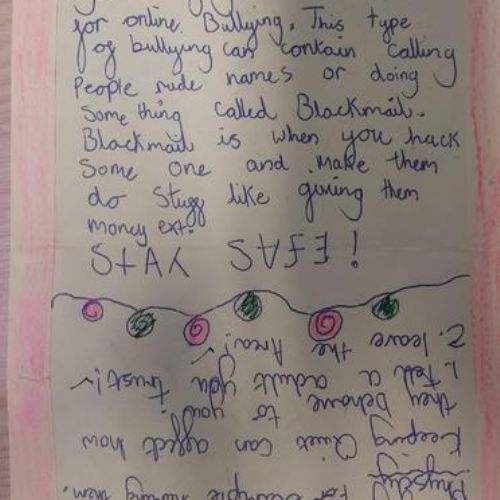 for online Bullying. This type
of bullying can contain calling
People rude names or doing
Something called Blackmail.
Blackmail is when you hack
Some one and make them
do stuff like giving them
money ext.
STAY SAFE !
for example them.
Keeping Quiet can affect how
they behave to you.
1. tell a adult you trust!
2. leave the Area!